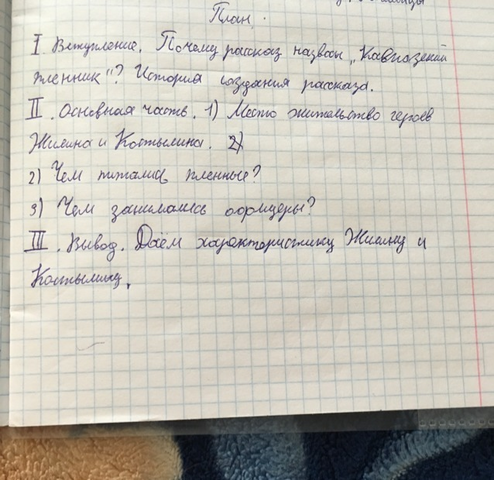 План.
I Вступление. Почему рассказ назван „Кавказский
пленник"? История создания рассказа.
II. Основная часть. 1) Место жительство героев
Жилина и Костылина.
2) Чем питались пленные?
3) Чем занимались офицеры?
III. Вывод. Даём характеристику Жилину и
Костылину.